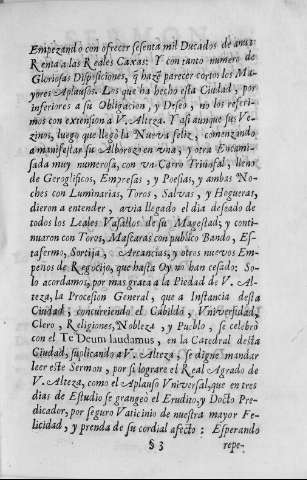 Empezandò con ofrecer sesenta mil Ducados de anua
Renta à las Reales Caxas: Y con tanto numero de
Gloriosas Disposiciones, q̃ hazẽ parecer cortos los Ma-
yores Aplausos. Los que ha hecho esta Ciudad, por
inferiores a su Obligacion, y Deseo, no los referi-
mos con extension a V. Alteza. Y asi aunque sus Ve-
zinos, luego que llegò la Nueva feliz, comenzando
a manifestar su Alborozo en vna, y otra Encami-
sada muy numerosa, con vn Carro Triũfal, lleno
de Geroglificos, Empresas, y Poesias, y ambas No-
ches con Luminarias, Toros, Salvas, y Hogueras,
dieron a entender, avia llegado el dia deseado de
todos los Leales Vasallos de su Magestad; y conti-
nuaron con Toros, Mascaras con publico Bando, Es-
tafermo, Sortija, Arcancias, y otros nuevos Em-
peños de Regocijo, que hasta Oy no han cesado: So-
lo acordamos, por mas grata a la Piedad de V. Al-
teza, la Procesion General, que a Instancia desta
Ciudad, concurriendo el Cabildo, Vniversidad,
Clero, Religiones, Nobleza, y Pueblo, se celebrò
con el Te Deum laudamus, en la Catedral desta
Ciudad, suplicando a V. Alteza, se digne mandar
leer este Sermon, por si lograre el Real Agrado de
V. Alteza, como el Aplauso Vniversal, que en tres
dias de Estudio se grangeò el Erudito, y Docto Pre-
dicador, por seguro Vaticinio de nuestra mayor Fe-
licidad, y prenda de su cordial afecto: Esperando
§ 3 repe-